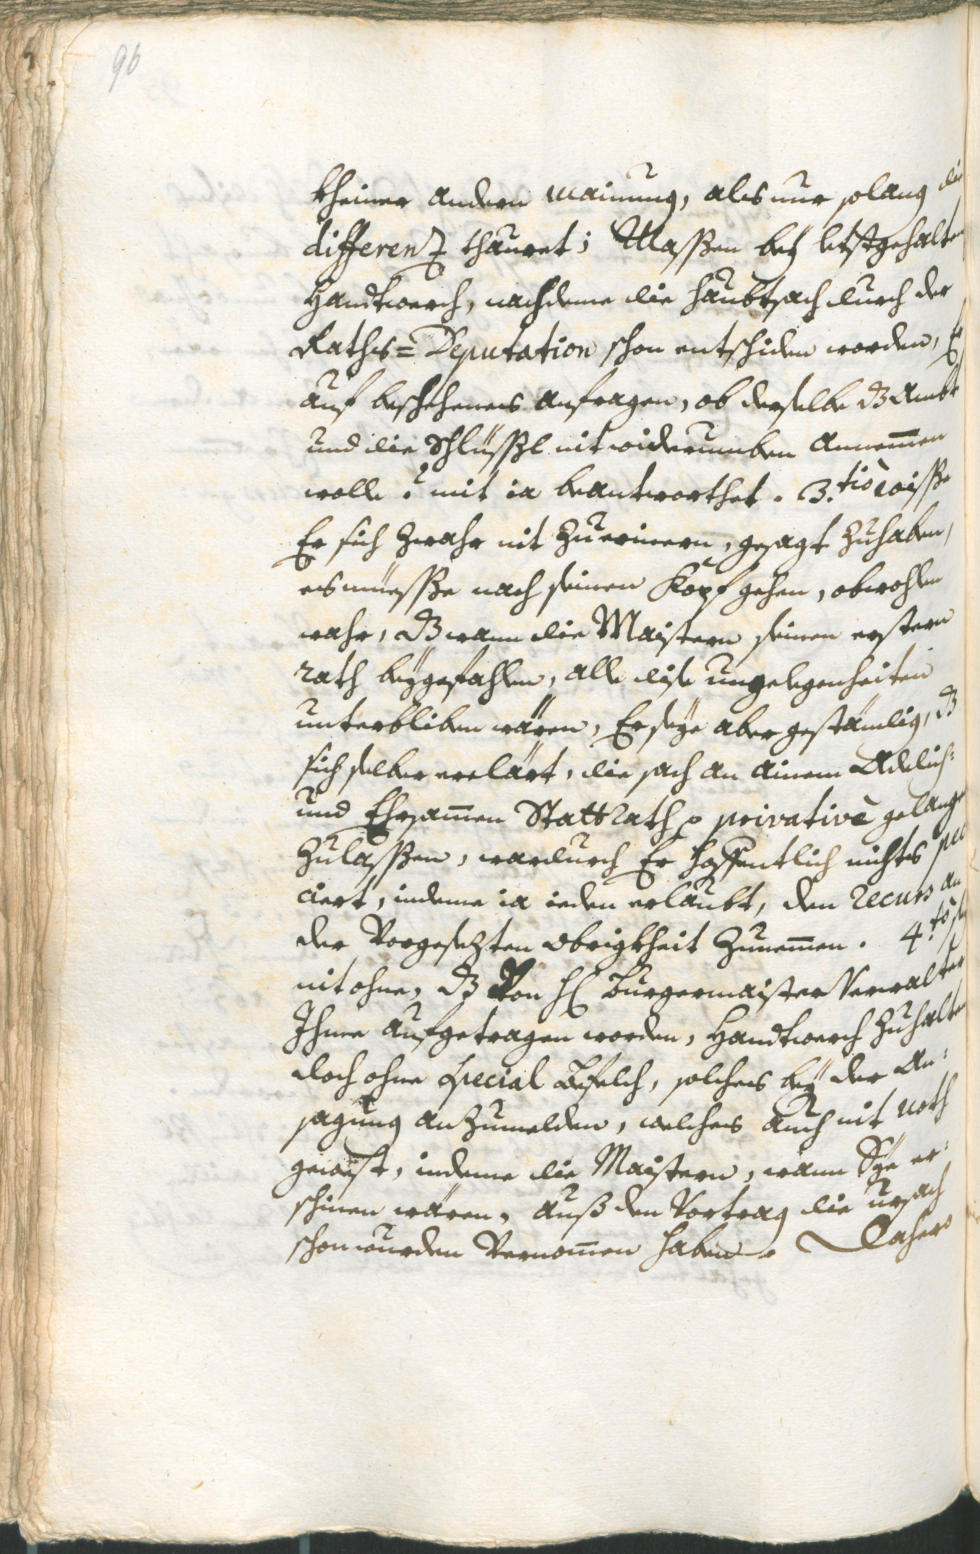 96
kheiner andern mainung, als nur solang die
differenz thauret; Massen bey lestgehalten
Handtwerch, nachdeme die haubtsach durch der
Raths= Deputation schon entschiden worden, Er
auf beschehenes anfragen, ob derselbe dz Ambt
und die Schlüssl nit widerumben Annemmen
wolle? mit ia beantworthet. 3.tio wisse
Er sich zwahr nit zuerinern, gesagt zuhaben,
es müesse nach seinen Kopf gehen, obwohlen
wahr, dz wann die Maistern seinen erstern
rath beygefahlen, alle dise ungelegenheiten
unterbliben wären, Er seye aber geständig, dz
sich selber erclärt, die sach an ainem Adelich=
und Ehrsammen Stattrath privativè gelangen
zulassen, wardurch Er hoffentlich nichts pec
ciert, indeme ia ieden erlaubt, den recurs an
der Vorgesezten obrigkheit zunemmen. 4.to sey
nit ohne, dz Von H: Burgermaister Verwalter
Ihme aufgetragen worden, Handtwerch zuhalten
doch ohne special Befelch, solches bey der An=
sagung anzumelden, welches auch nit noth
gewest, indeme die Maistern, wann Sye er=
schinen wären, auß den Vortrag die ursach
schon wurden Vernommen haben. Dahero